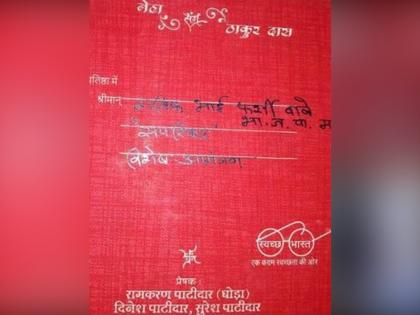 नेहा संग ठाकुर दास
प्रतिष्ठा में
श्रीमान् भाई फर्शी वाले
भा.ज.पा. म
सपरिवार
विशेष आमंत्रण
स्वच्छ भारत
एक कदम स्वच्छता की ओर
प्रेषक
रामकरण पाटीदार (घोड़ा)
दिनेश पाटीदार, सुरेश पाटीदार